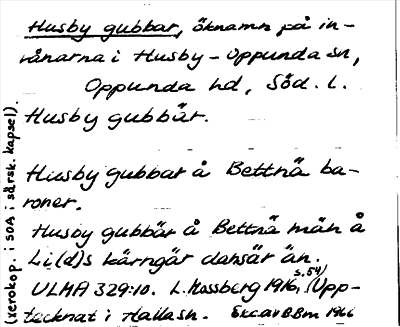 Husby gubbar, öknamn på in-
vånarna i Husby-Oppunda sn,
Oppunda hd, Söd. l.
Husby gubbär.
Husby gubbar å Bettnä ba-
roner.
Husby gubbär å Bettnä män å
Li(d)s kärngär dansär än.
s. 54)
ULMA 329:10. L. Mossberg 1916, (Upp-
tecknat i Halla sn. Exc av BBm 1966
(xerokop. i SOA i särsk. kapsel).